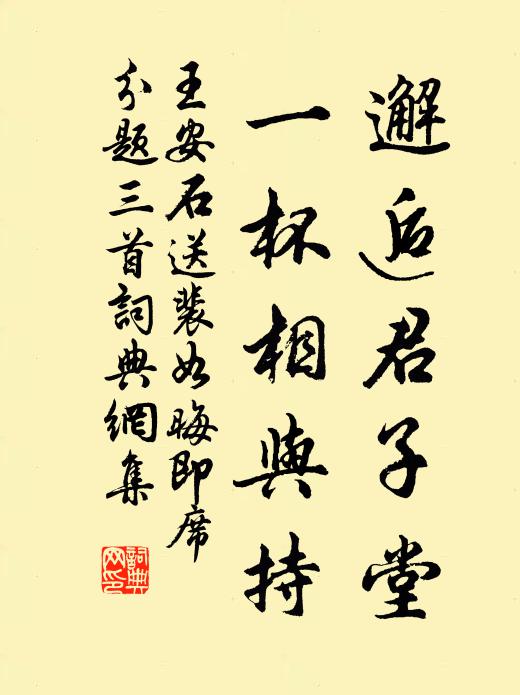 邂逅君子堂
一杯相與持
王安石送裴如晦即席
分題三首詞典網集
詞典
网印